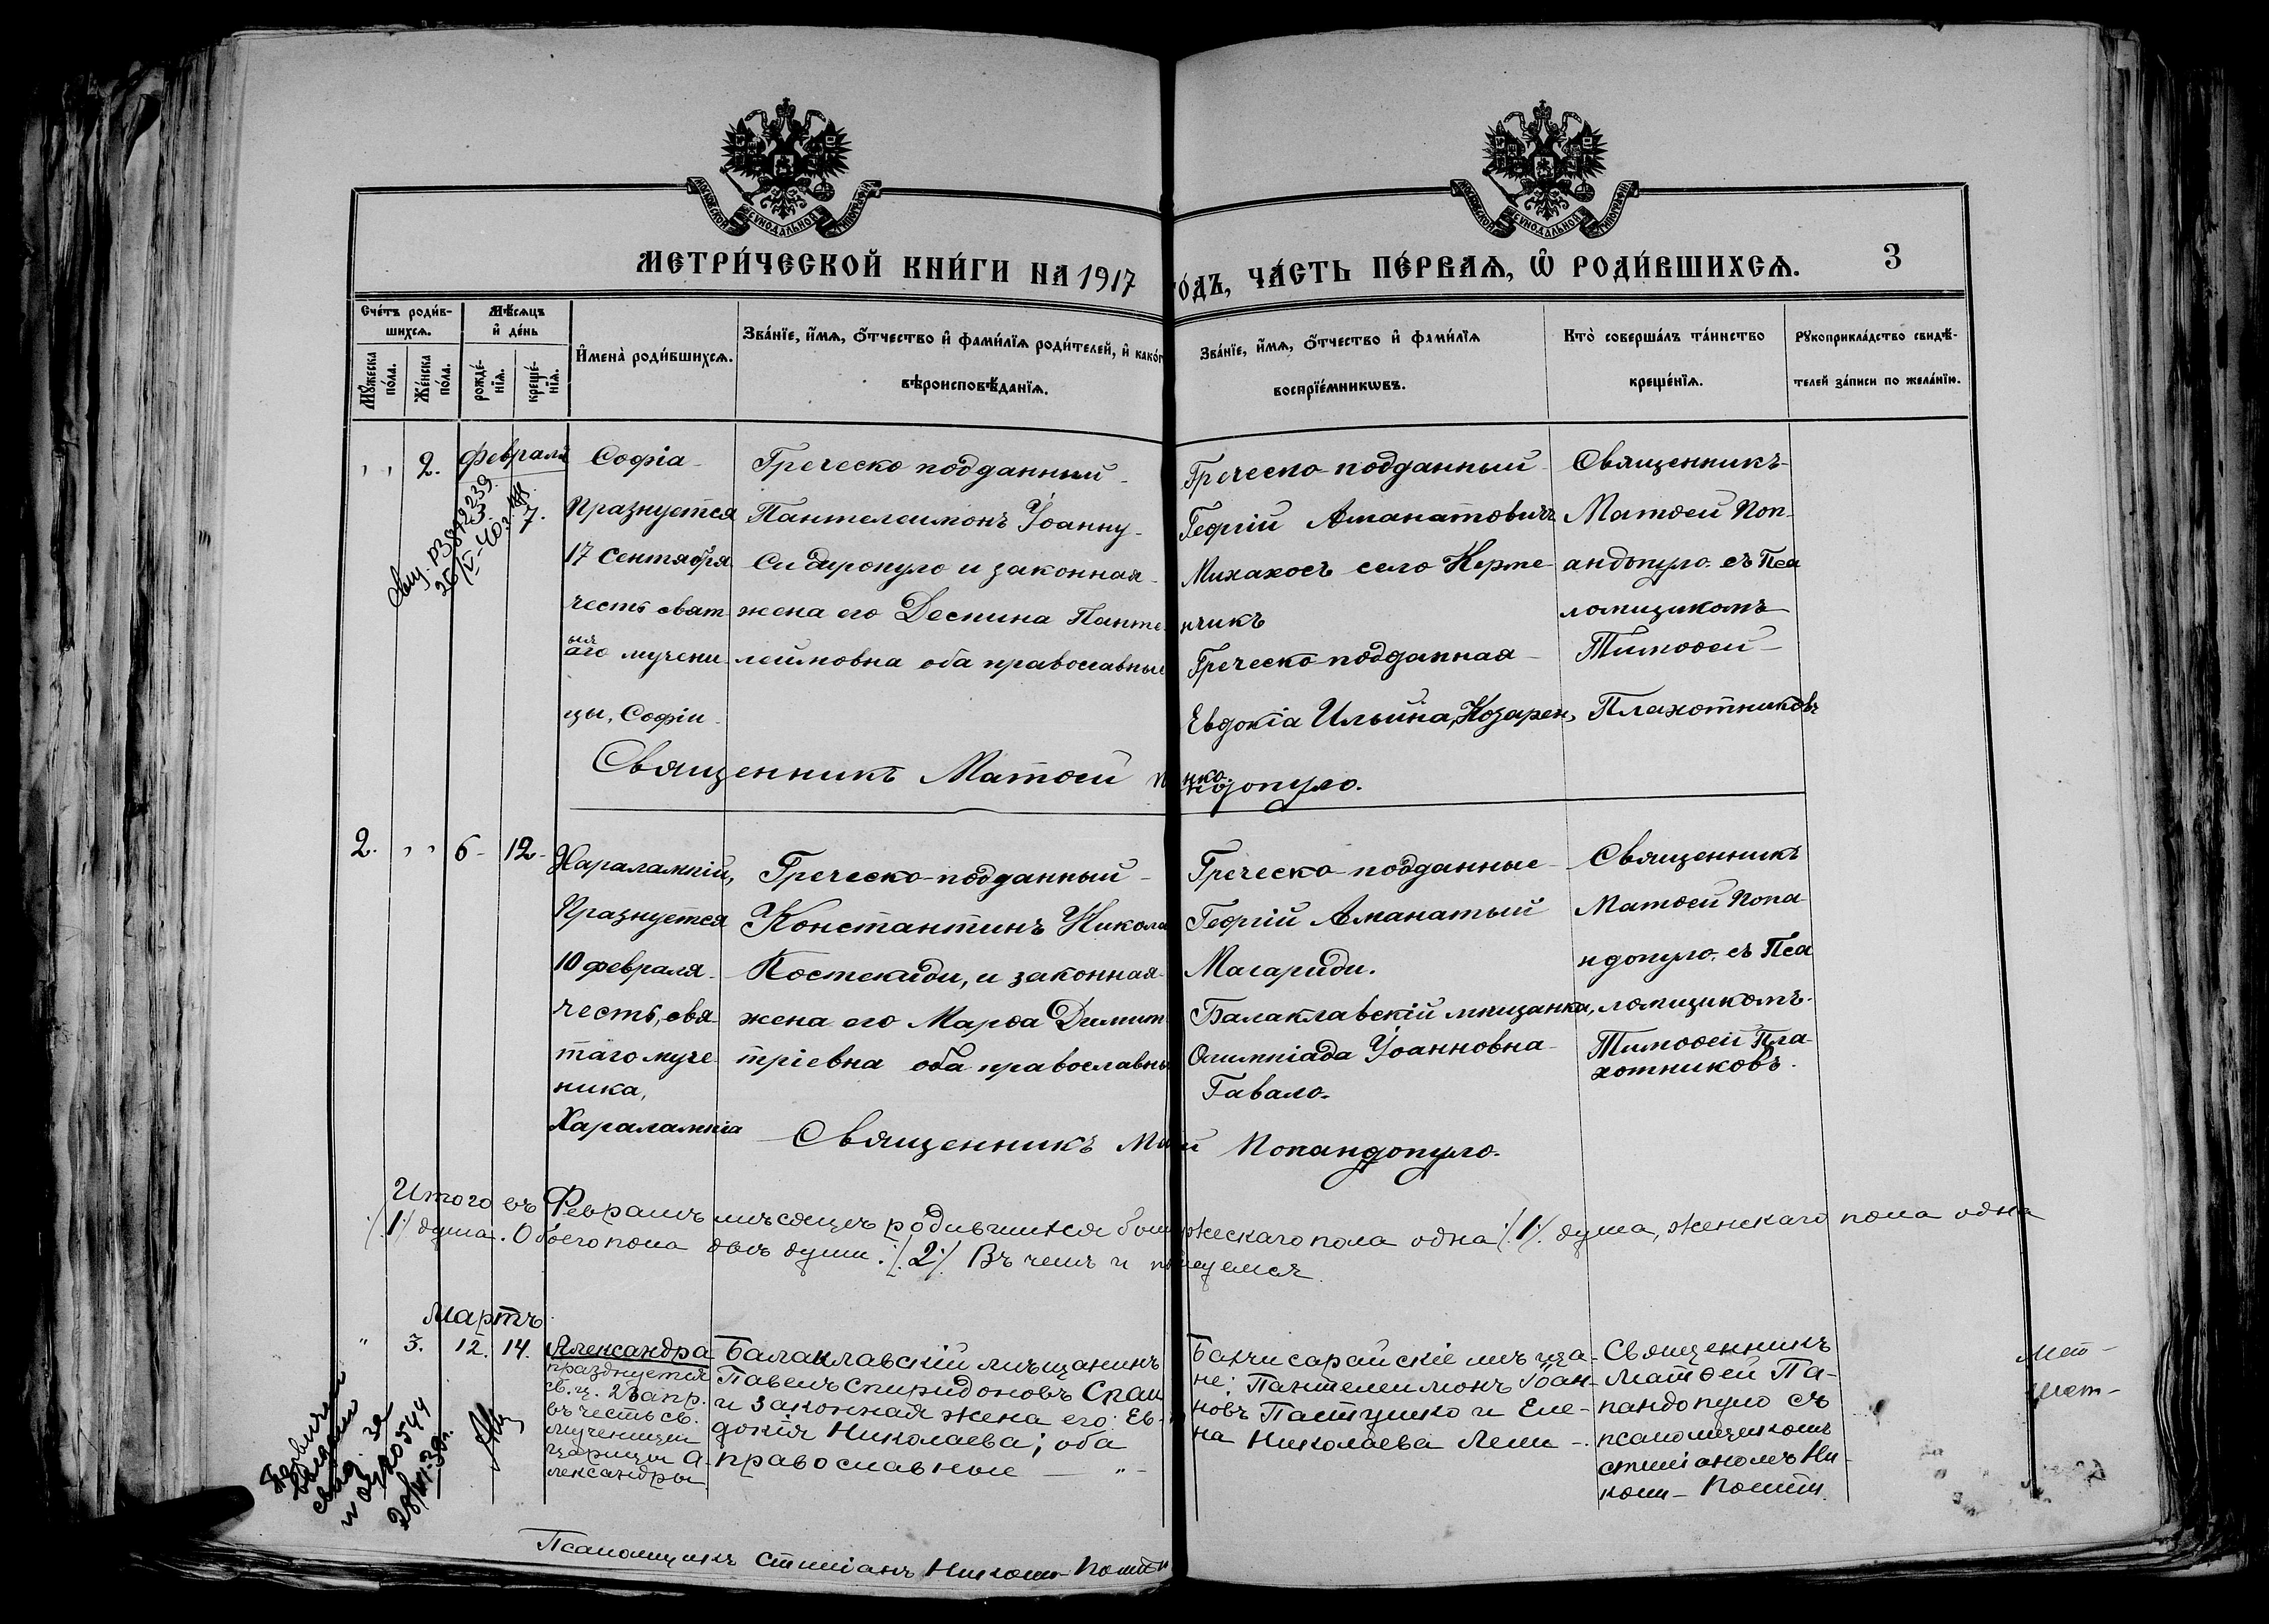 МОСКОВСКОЙ СѴНОДАЛЬНОЙ ТИПОГРАФІИ
МОСКОВСКОЙ СѴНОДАЛЬНОЙ ТИПОГРАФІИ
МЕТРИ́ЧЕСКОЙ КНИ́ГИ НА 1917 ГО́ДЪ, ЧА́СТЬ ПЕ́РВАѦ, Ѽ РОДИ́ВШИХСѦ. 3
Сче́тъ роди́в-
шихсѧ.
Мꙋ́жеска по́ла.
Же́нска по́ла.
Мѣ́сѧцъ
и҆ де́нь
рожде́-нїѧ.
креще́-нїѧ.
И҆мена̀ роди́вшихсѧ.
Зва́нїе, и҆́мѧ, ѻ҆́тчество и҆ фами́лїѧ роди́телей, и҆ како́г
вѣроисповѣ́данїѧ.
Зва́нїе, и҆́мѧ, ѻ҆́тчество и҆ фами́лїѧ
воспрїе́мникѡвъ.
Кто̀ соверша́лъ та́инство
креще́нїѧ.
Рꙋкоприкла́дство свидѣ́-
телей за́писи по жела́нїю.
" 2. Февраля
3. 7.
Софіа
Празнуется
17 Сентября
честь сват
ыя
аго мучени
цы, Софіи
Греческо подданный
Пантелеимонъ Іоанну
Сидиропуло и законная
жена его Деспина Панте
леимовна оба православные
Греческо-подданный
Георгій Аманатовичъ
Михахосъ село Керме
нчикъ
Греческо-подданная
Евдокіа Ильина, Козарен,
Священникъ
Матѳеи Поп
андопуло. съ Пса
ломщикомъ
Тимоѳеи
Плахотниковъ
Священникъ Матѳеи Попандопуло.
2. " 6 12
Харалампіи,
Празнуется
10 февраля
честь, свя
таго муче
ника,
Харалампіа
Греческо-подданный
Константинъ Никола
Костекиди, и законная
жена его Марѳа Димит
тріевна оба православны
Греческо-подданные
Георгій Аманатый
Магариди.
Балаклавскій мищанка,
Олимпіада Іоанновна
Гавало.
Священникъ
Матѳеи Попа
ндопуло. съ Пса
ломщикомъ
Тимоѳей Пла
хотниковъ.
Священникъ Матѳеи Попандопуло.
Итого въ Февралѣ мѣсяцѣ родившихся мужескаго пола одна /:1:/ душа, женскаго пола одна
/:1:/ душа. Обоего пола двѣ души. /:2:/ Въ чемъ и подписуемся
Мартъ
" 3. 12. 14.
Александра
празднуется
св. ц. 23 апр.
въ честь св.
мученицы
царицы А-
лександры
Балаклавскій мѣщанинъ
Павелъ Спиридоновъ Спаи
и законная жена его: Ев-
докія Николаева; оба
православные — " —
Бахчисарайскіе мѣща-
не: Пантелеимонъ Іоан-
новъ Пастушко и Еле-
на Николаева Леши —.
Священникъ
Матѳей Па-
пандопуло съ
псаломщикомъ
Стиліаномъ Ни-
Псаломщикъ Стиліанъ